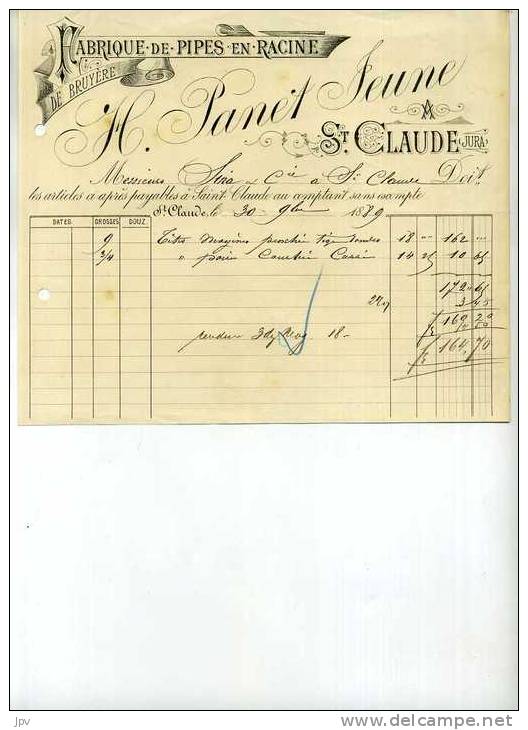 FABRIQUE·DE·PIPES·EN·RACINE
DE BRUYÈRE
H. Panet Jeune
A
ST. CLAUDE (JURA)
Messieurs & Cie à St Claude Doit
les articles ci après payables à Saint-Claude au comptant sans escompte
St. Claude, le 30 9bre 1889
DATES GROSSES DOUZ.
9 Têtes tige 18 " 162 "
3/4 " 14 25 10 65
172 65
2% 3 45
f 169 20
3 18 -
f 164 70
© jpv www.delcampe.net